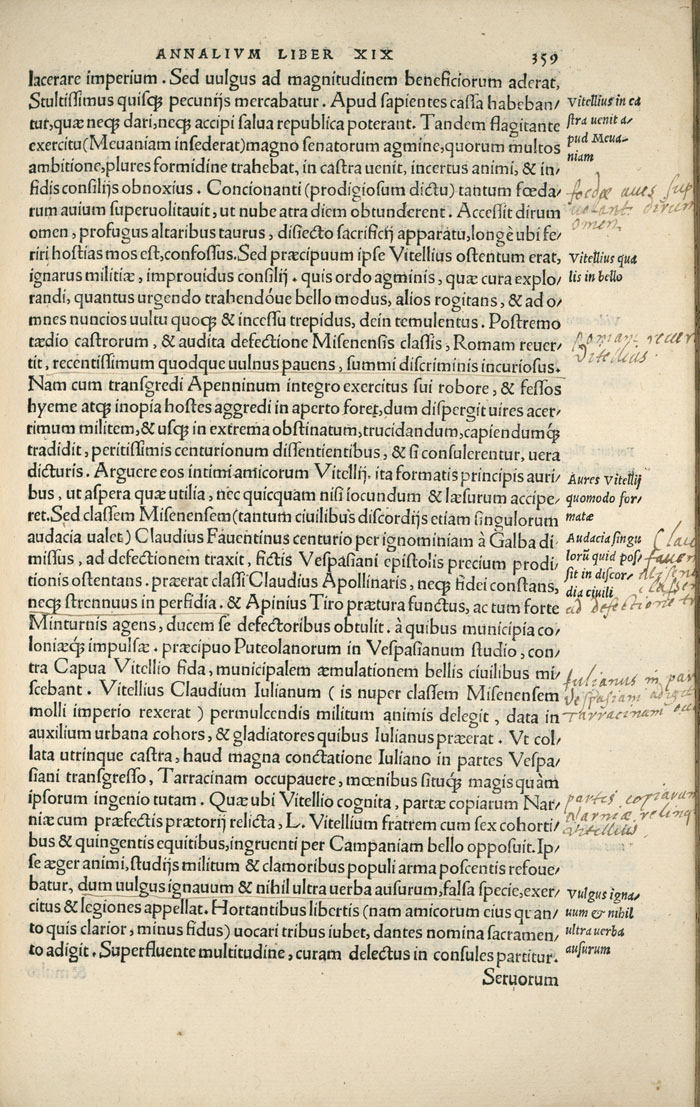 ANNALIVM LIBER XIX 359
lacerare imperium. Sed uulgus ad magnitudinem beneficiorum aderat,
Stultissimus quisqꝫ pecunijs mercabatur. Apud sapientes cassa habeban/
tur, quæ neqꝫ dari, neqꝫ accipi salua republica poterant. Tandem flagitante
exercitu (Meuaniam insederat) magno senatorum agmine, quorum multos
ambitione, plures formidine trahebat, in castra uenit, incertus animi, & in/
fidis consilijs obnoxius. Concionanti (prodigiosum dictu) tantum fœda/
rum auium superuolitauit, ut nube atra diem obtunderent. Accessit dirum
omen, profugus altaribus taurus, disiecto sacrificij apparatu, longè ubi fe/
riri hostias mos est, confossus. Sed præcipuum ipse Vitellius ostentum erat,
ignarus militiæ, improuidus consilij. quis ordo agminis, quæ cura explo/
randi, quantus urgendo trahendóue bello modus, alios rogitans, & ad o/
mnes nuncios uultu quoqꝫ & incessu trepidus, dein temulentus. Postremo
tædio castrorum, & audita defectione Misenensis classis, Romam reuer/
tit, recentissimum quodque uulnus pauens, summi discriminis incuriosus.
Nam cum transgredi Apenninum integro exercitus sui robore, & fessos
hyeme atqꝫ inopia hostes aggredi in aperto foret, dum dispergit uires acer/
rimum militem, & usqꝫ in extrema obstinatum, trucidandum, capiendumqꝫ
tradidit, peritissimis centurionum dissentientibus, & si consulerentur, uera
dicturis. Arguere eos intimi amicorum Vitellij. ita formatis principis auri/
bus, ut aspera quæ utilia, nec quicquam nisi iocundum & læsurum accipe/
ret. Sed classem Misenensem (tantum ciuilibus discordijs etiam singulorum
audacia ualet) Claudius Fauentinus centurio per ignominiam à Galba di/
missus, ad defectionem traxit, fictis Vespasiani epistolis precium prodi/
tionis ostentans. præerat classi Claudius Apollinaris, neqꝫ fidei constans,
neqꝫ strennuus in perfidia. & Apinius Tiro prætura functus, ac tum forte
Minturnis agens, ducem se defectoribus obtulit. à quibus municipia co/
loniæqꝫ impulsæ. præcipuo Puteolanorum in Vespasianum studio, con/
tra Capua Vitellio fida, municipalem æmulationem bellis ciuilibus mi/
scebant. Vitellius Claudium Iulianum (is nuper classem Misenensem
molli imperio rexerat) permulcendis militum animis delegit, data in
auxilium urbana cohors, & gladiatores quibus Iulianus præerat. Vt col/
lata utrinque castra, haud magna conctatione Iuliano in partes Vespa/
siani transgresso, Tarracinam occupauere, mœnibus situqꝫ magis quàm
ipsorum ingenio tutam. Quæ ubi Vitellio cognita, partæ copiarum Nar/
niæ cum præfectis prætorij relicta, L. Vitellium fratrem cum sex cohorti/
bus & quingentis equitibus, ingruenti per Campaniam bello opposuit. Ip/
se æger animi, studijs militum & clamoribus populi arma poscentis refoue/
batur, dum uulgus ignauum & nihil ultra uerba ausurum, falsa specie, exer/
citus & legiones appellat. Hortantibus libertis (nam amicorum eius quan/
to quis clarior, minus fidus) uocari tribus iubet, dantes nomina sacramen/
to adigit. Superfluente multitudine, curam delectus in consules partitur.
Seruorum
Vitellius in ca
stra uenit a/
pud Meua/
niam
fœdæ aues sup
uolant dirum
omen
Vitellius qua
lis in bello
Romam reuer
Vitellius
Aures Vitellij
quomodo for/
matæ
Audacia singu
lorũ quid pos/
sit in discor/
dia ciuili
Clau
fauen
Misene
classe
ad defectione tr
Iulianus in par
Vespasiani
Tarracinam occ
partes copiarum
Narniæ relinq
Vitellius
Vulgus igna/
uum & nihil
ultra uerba
ausurum